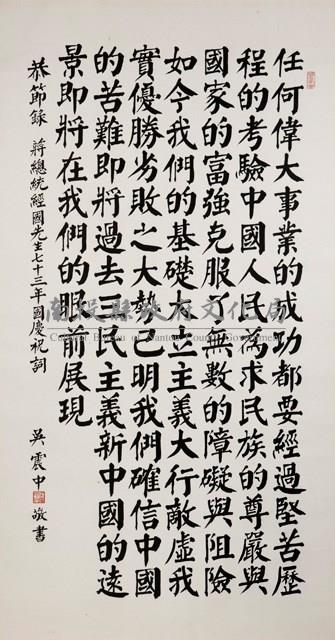 任何偉大事業的成功都要經過堅苦歷
程的考驗中國人民為求民族的尊嚴與
國家的富強克服了無數的障礙與阻險
如今我們的基礎大立主義大行敵虛我
實優勝劣敗之大勢已明我們確信中國
的苦難即將過去三民主義新中國的遠
景即將在我們的眼前展現
恭節錄 蔣總統經國先生七十三年國慶祝詞
吳震中 敬書
南投縣政府文化局
Cultural Bureau of Nantou County Government